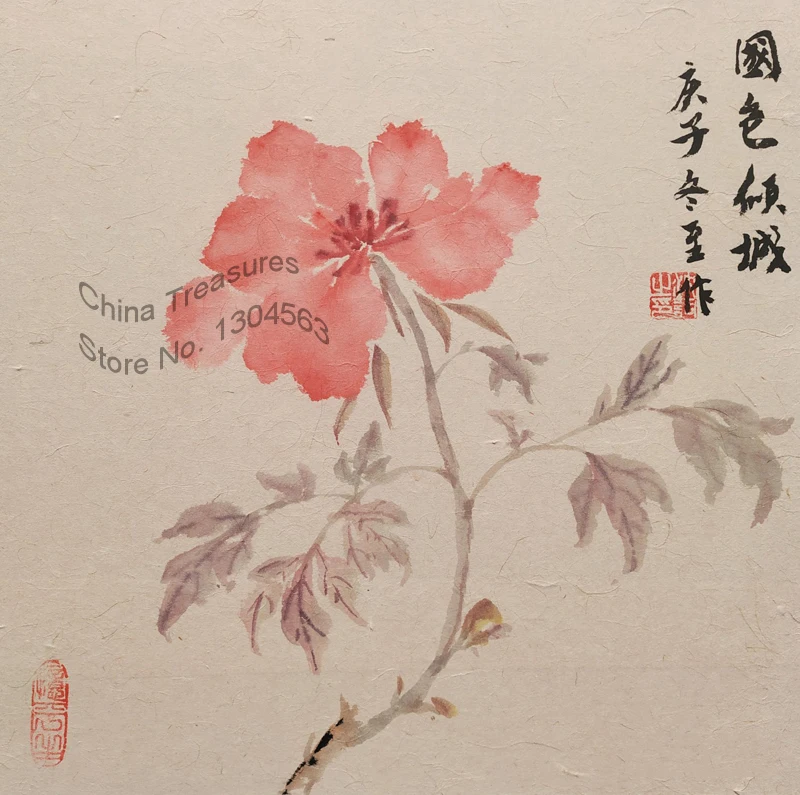 國色傾城
庚子冬至作
China Treasures
Store No. 1304563